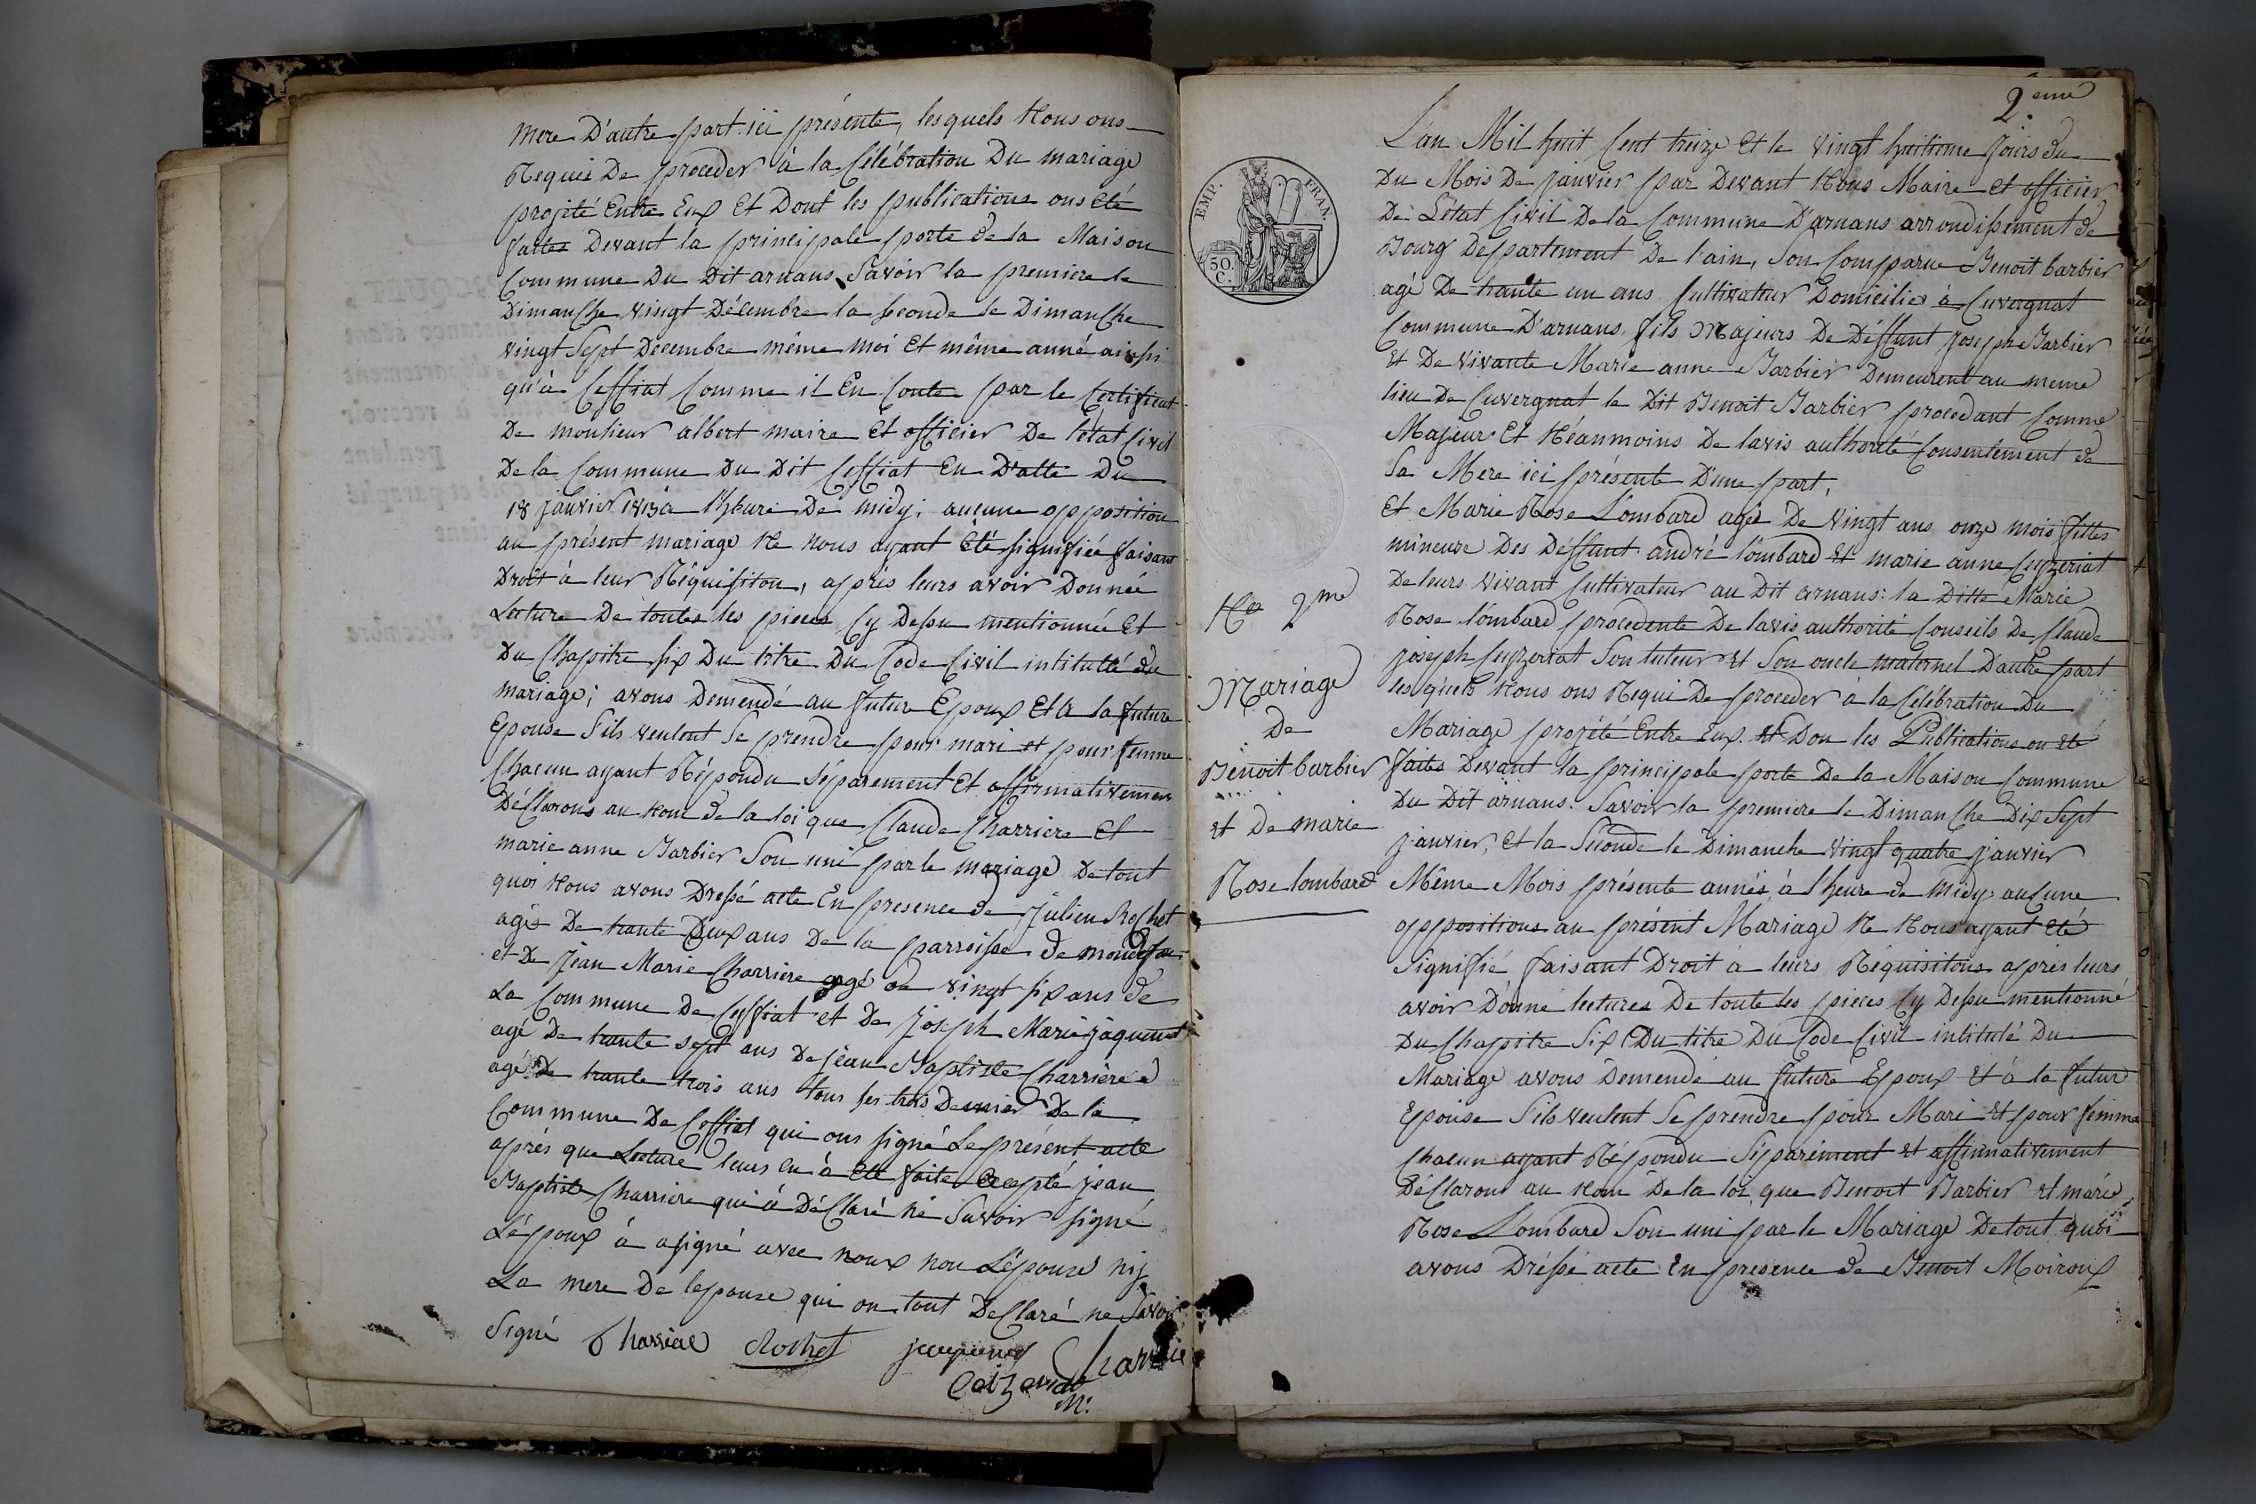 mere D'autre part ici présente, lesquels Nous ons
Requis De proceder à la Célébration Du mariage
projeté Entre Eux Et Dont les publications ons été
faites Devant la principale porte de la Maison
Commune Du Dit arnans, Savoir la premiere le
Dimanche vingt Décembre la seconde le Dimanche
vingt Sept Décembre même moi Et même anné ainsi
qu'a Ceffiat Comme il En Conte par le Certificat
De monsieur albert maire Et officier De létat Civil
De la Commune Du Dit Ceffiat En D'atte Du
18 janvier 1813 à l'heure De midy; aucune opposition
au présent mariage Ne nous ayant Eté signifiée faisant
Droit à leur Réquisiton, après leurs avoir Donnée
Lecture De toutes les pieces Cy Dessu mentionnée Et
Du Chapitre six Du titre Du Code Civil intitullé du
mariage; avons Demendé au futur Epoux Et A la future
Epouse S'ils veulent Se prendre pour mari et pour femme
Chacun ayant Répondu Séparement Et affirmativemen
Déclarons au Nom de la loi que Claude Charriere Et
marie anne Barbier Son uni par le mariage De tout
quoi Nous avons Dressé acte En presence de Julien Rochet
agés De trante Deux ans De la parroisse de
et De Jean Marie Charriere agé de vingt six ans de
La Commune De Ceffiat et De Joseph Marie jaquemet
agé De trante sept ans De jean Baptiste Charriere
agé De trante trois ans tous les trois Dernier De la
Commune De Ceffiat qui ons signé Le présent acte
après que Lecture leurs En à Eté faite Excepté jean
Baptiste Charriere qui à Déclaré Né Savoir signé
L'époux à asigné avec noux non L'épouse nij
La mere De lepouse qui on tout Declaré ne Savoir
Signé Charriere Rochet jacquemet Charriere
M.
2.eme
L'an Mil huit Cent treize Et le vingt huitieme Jours du
Du Mois De janvier par Devant Nous Maire et officier
De L'état Civil De la Commune D'arnans arrondissement de
Bourg Departement De l'ain, Son Comparue Benoit barbier
agé De trante un ans Cultivatteur Domicilie à Cuvergnat
Commune D'arnans fils Majeurs De Deffunt Joseph Barbier
Et De vivante Marie anne Barbier Demeurent au meme
lieu De Cuvergnat le Dit Benoit Barbier procedant Comme
Majeur Et Néanmoins De lavis authorité Consentement de
Sa Mere ici présente D'une part,
Et Marie Rose Lombard agée De vingt ans onze mois filles
mineure Des Deffunt andré lombard Et marie anne Ceyzeriat
De leurs vivant Cultivateur au Dit arnans: la Ditte Marie
Rose lombard procedente De lavis authorité Conseils De Claude
joseph Ceyzeriat Son tuteur et Son oncle maternel D'autre part
les quels Nous ons Requi De proceder à la Célébration Du
Mariage projété Entre Eux. Et Don les Publications on été
faites Devant la principale porte De la Maison Commune
Du Dit arnans. Savoir la premiere le Dimanche Dix Sept
janvier, Et la Seconde le Dimanche vingt quatre janvier
Même Mois présente année à l'heure de Midy aucune
oppositions au présent Mariage Ne Nous ayant Eté
Signifié faisant Droit à leurs Réquisitons après leurs
avoir Donné lectures De toute les pieces Cy Dessu mentionné
Du Chapitre Six Du titre Du Code Civil intitulé Du
Mariage avons Demendé au future Epoux Et à la futur
Epouse S'ils veulent Se prendre pour Mari et pour femme
Chacun ayant Répondu Séparément et affirmativement
Déclarons au Nom De la loi que Benoit Barbier et marie
Rose Lombard Son uni par le Mariage De tout quoi
avons Dréssé acte En presence de Benoit Moiroux
EMP. FRAN.
50. C.
No 2me
Mariage
De
Benoit barbier
et De marie
Rose lombard